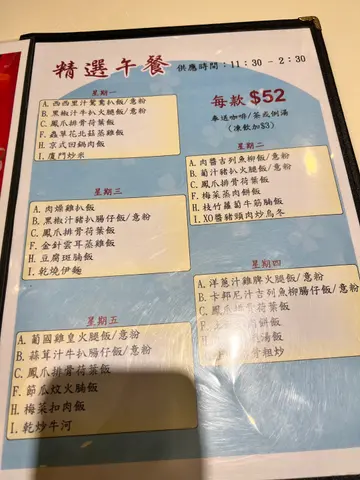 精選午餐 供應時間：11:30 - 2:30
每款 $52
奉送咖啡/茶或例湯
(凍飲加$3)
星期一
A. 西西里汁鴛鴦扒飯/意粉
B. 黑椒汁牛扒火腿飯/意粉
C. 鳳爪排骨荷葉飯
F. 蟲草花北菇蒸雞飯
H. 京式回鍋肉飯
I. 廈門炒米
星期二
A. 肉醬吉列魚柳飯/意粉
B. 葡汁豬扒火腿飯/意粉
C. 鳳爪排骨荷葉飯
F. 梅菜蒸肉餅飯
H. 枝竹蘿蔔牛筋腩飯
I. XO醬豬頸肉炒烏冬
星期三
A. 肉燥雞扒飯/意粉
B. 黑椒汁豬扒腸仔飯/意粉
C. 鳳爪排骨荷葉飯
F. 金針雲耳蒸雞飯
H. 豆腐斑腩飯
I. 乾燒伊麵
星期四
A. 洋蔥汁雞脾火腿飯/意粉
B. 卡邦尼汁吉列魚柳腸仔飯/意粉
C. 鳳爪排骨荷飯
餅飯
飯
炒
星期五
A. 葡國雞皇火腿飯/意粉
B. 蒜茸汁牛扒腸仔飯/意粉
C. 鳳爪排骨荷葉飯
F. 節瓜炆火腩飯
H. 梅菜扣肉飯
I. 乾炒牛河